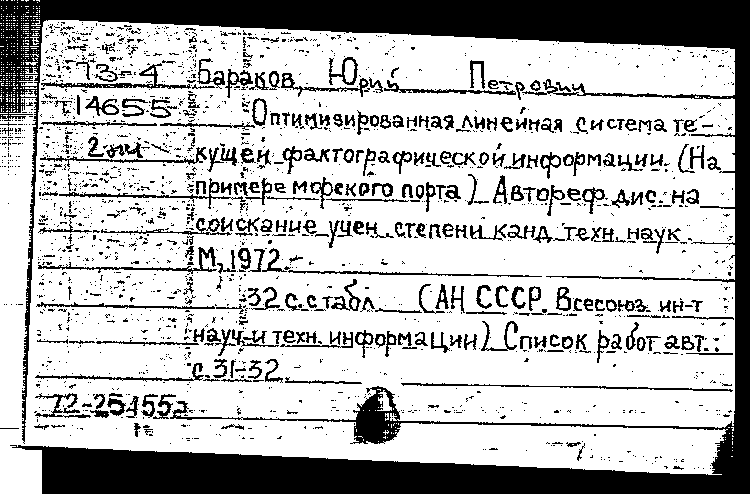 73-4 Бараков, Юрий Петрович
14655 Оптимизированная линейная система те-
2 экз кущей фактографической информации. (На
примере морского порта) Автореф. дис. на
соискание учен. степени канд. техн. наук
М., 1972.
32 с. с табл. (АН СССР. Всесоюз. ин-т
науч. и техн. информации) Список работ авт.:
с. 31-32.
72-25155а